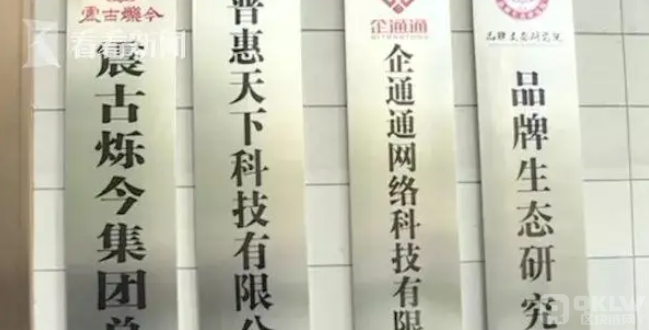 震古烁今
震古烁今集团总
普惠天下科技有限公
企通通
QITONGTONG
企通通网络科技有限
品牌生态研究院
品牌生态研究
看看新闻
9KLW